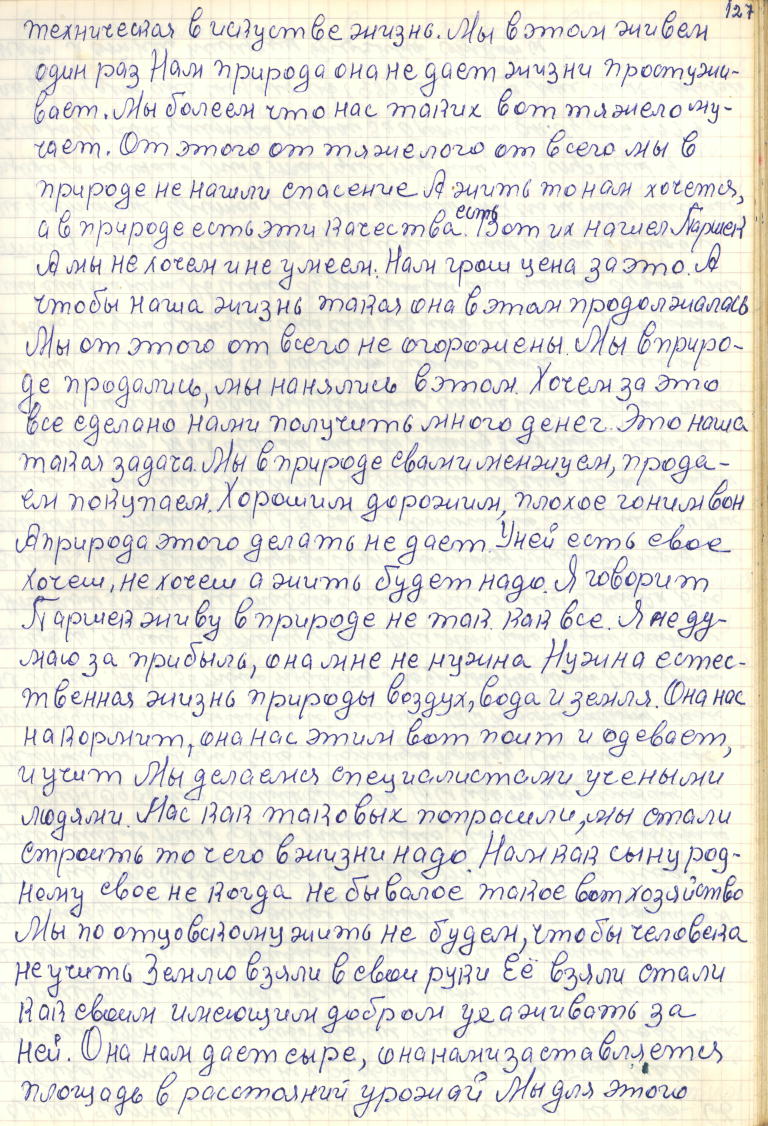 127
техническая в искустве жизнь. Мы в этом живем
один раз Нам природа она не дает жизни простужи-
вает. Мы болеем что нас таких вот тяжело му-
чает. От этого от тяжелого от всего мы в
природе не нашли спасение А жить то нам хочется,
а в природе есть эти качества. есть Вот их нашел Паршек
А мы не хочем и не умеем. Нам грош цена за это. А
чтобы наша жизнь такая она в этом продолжалась
Мы от этого от всего не огорожены. Мы в приро-
де продались, мы нанялись в этом. Хочем за это
все сделано нами получить много денег. Это наша
такая задача. Мы в природе свами менжуем, прода-
ем покупаем. Хорошим дорожим, плохое гоним вон
А природа этого делать не дает. У ней есть свое
хочеш, не хочеш а жить будет надо. Я говорит
Паршек живу в природе не так как все. Я не ду-
маю за прибыль, она мне не нужна Нужна естес-
твенная жизнь природы воздух, вода и земля. Она нас
накормит, она нас этим вот поит и одевает,
и учит Мы делаемся специалистами учеными
людями. Нас как таковых попрасили, мы стали
строить то чего в жизни надо. Нам как сыну род-
ному свое не когда не бывалое такое вот хозяйство
Мы по отцовскому жить не будем, чтобы человека
не учить Землю взяли в свои руки Её взяли стали
как своим имеющим добром ухаживать за
ней. Она нам дает сыре, она нами заставляется
площадь в расстояний урожай Мы для этого